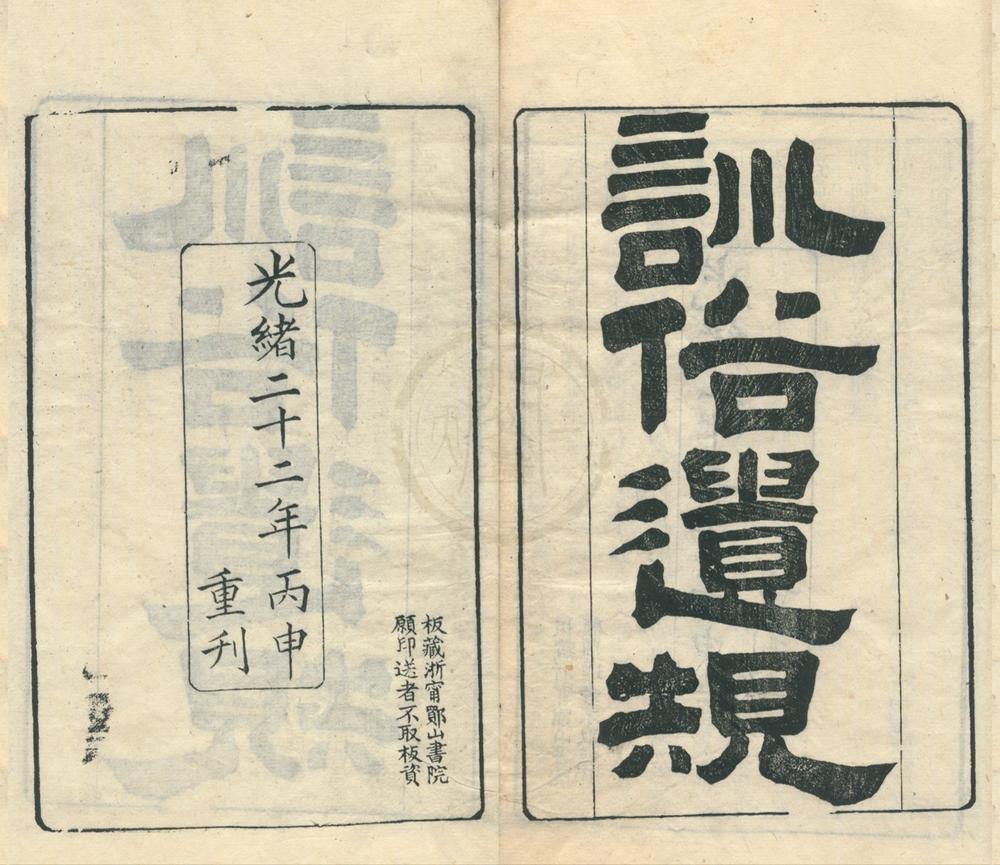 訓俗遺規
光緒二十二年丙申
重刋
板藏浙甯鄮山書院
願印送者不取板資